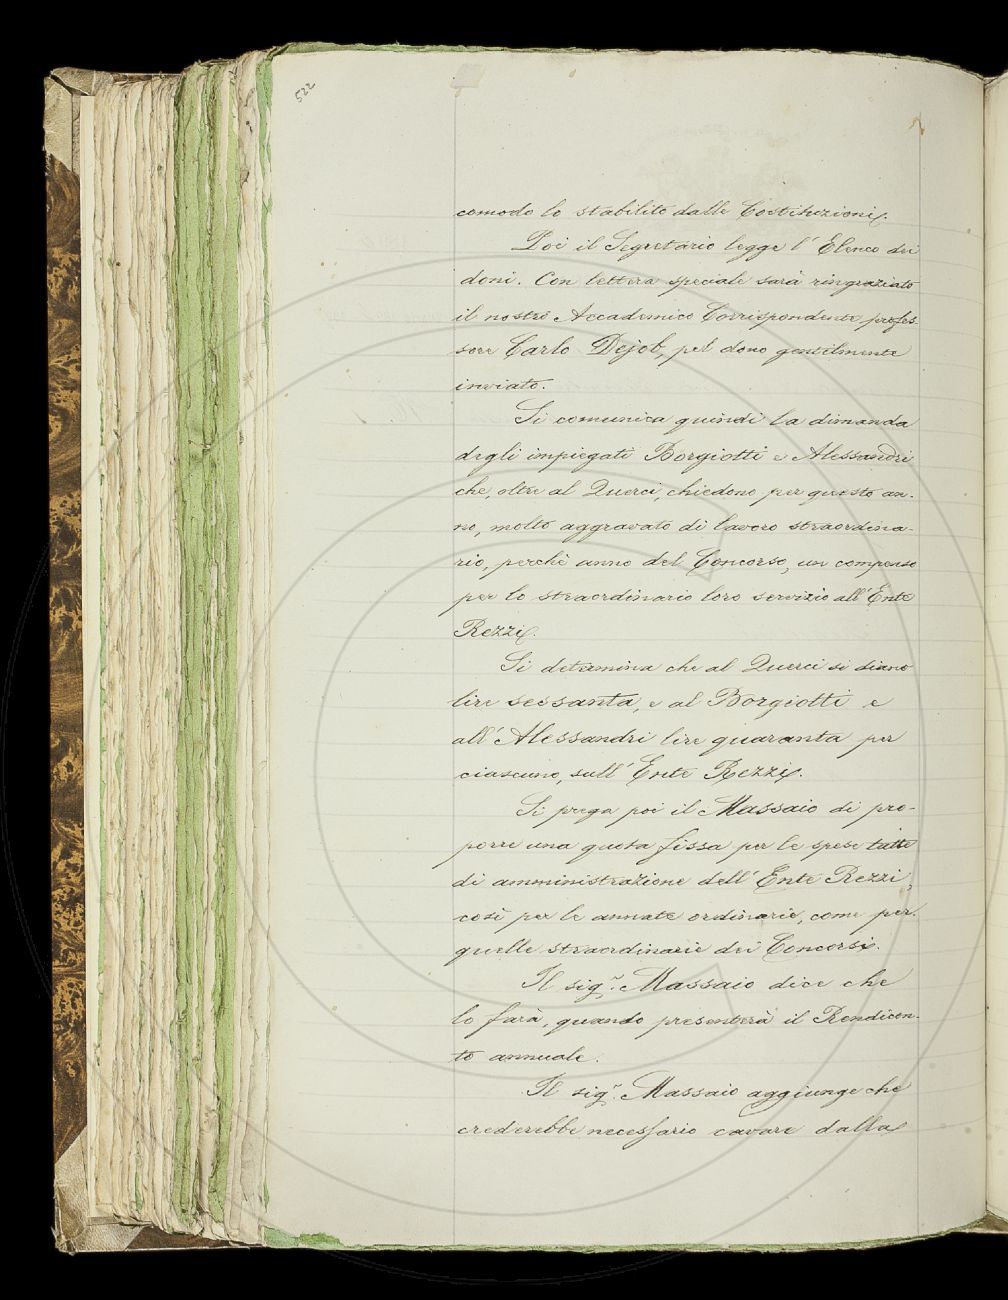 522
comodo lo stabilito dalle Costituzioni.
Poi il Segretario legge l'Elenco dei
doni. Con lettera speciale sarà ringraziato
il nostro Accademico Corrispondente profes-
sore Carlo Dejob, pel dono gentilmente
inviato.
Si comunica quindi la dimanda
degli impiegati Borgiotti e Alessandri
che, oltre al Querci, chiedono per questo an-
no, molto aggravato di lavoro straordina-
rio, perchè anno del Concorso, un compenso
per lo straordinario loro servizio all'Ente
Rezzi.
Si determina che al Querci si diano
lire sessanta, e al Borgiotti e
all'Alessandri lire quaranta per
ciascuno, sull'Ente Rezzi.
Si prega poi il Massaio di pro-
porre una quota fissa per le spese tutte
di amministrazione dell'Ente Rezzi,
così per le annate ordinarie, come per
quelle straordinarie dei Concorsi.
Il sig.r Massaio dice che
lo farà, quando presenterà il Rendicon-
to annuale.
Il sig.r Massaio aggiunge che
crederebbe necessario cavare dalla